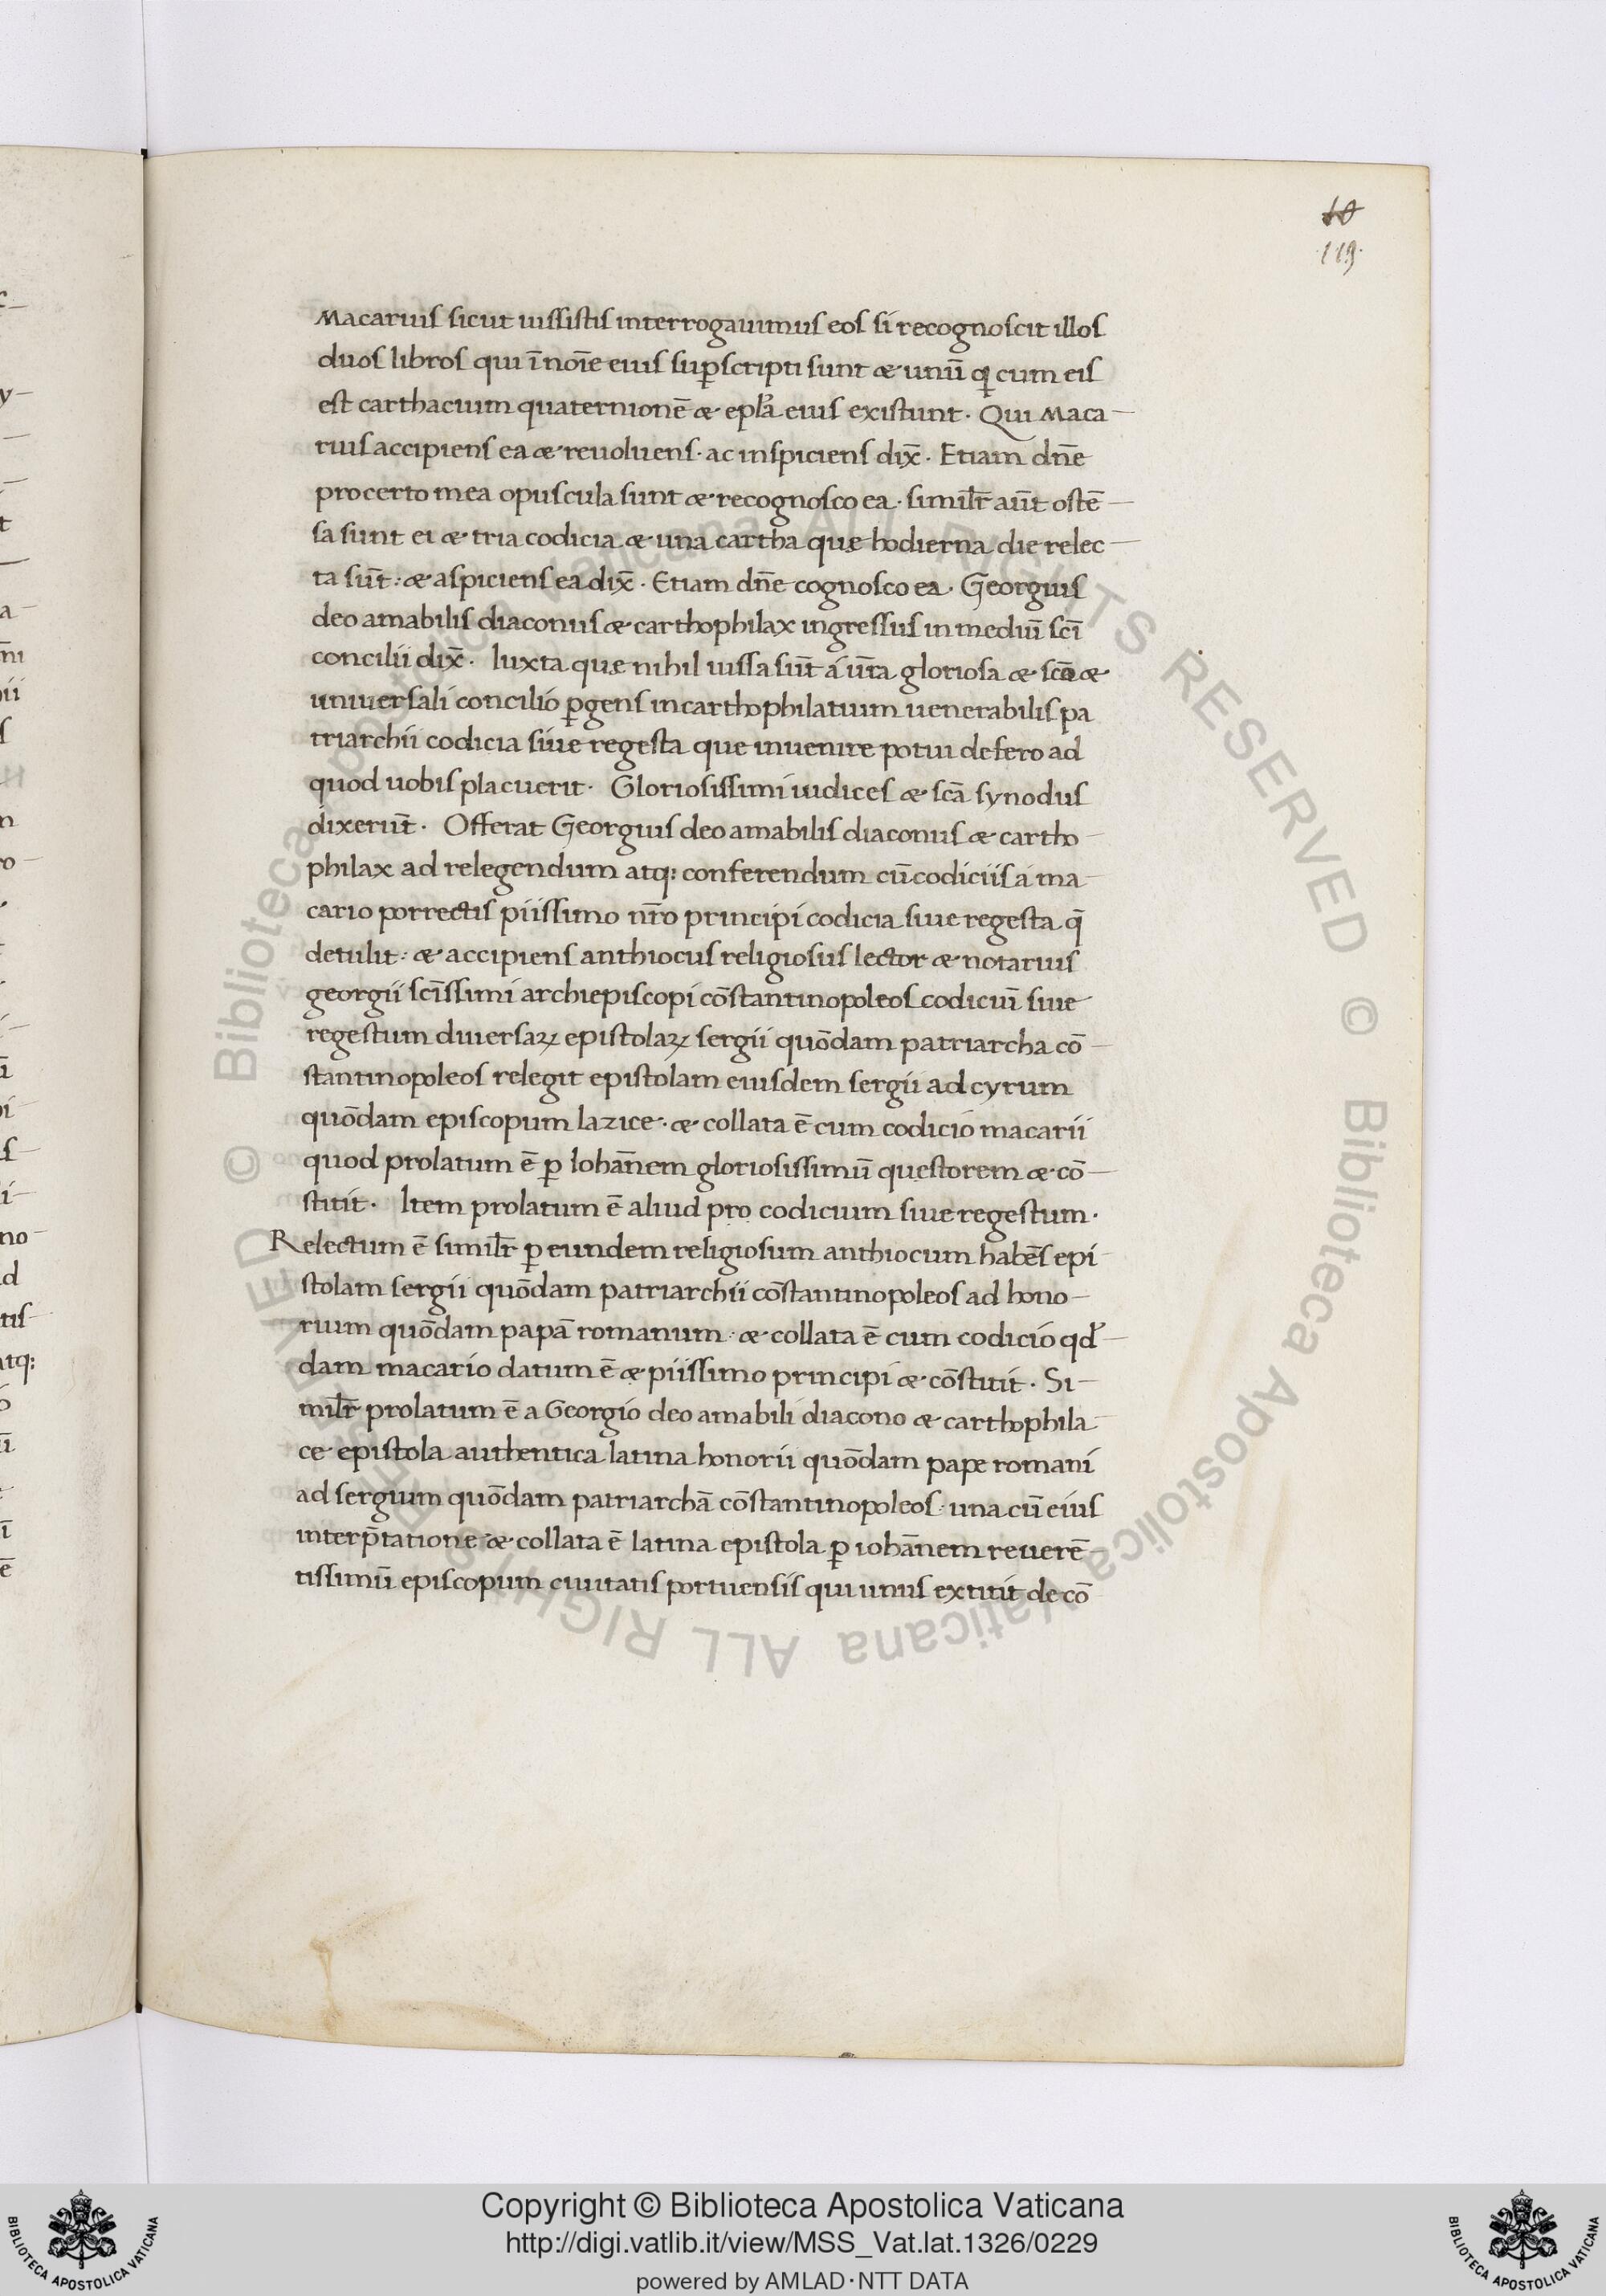 10
119.
Macarius sicut iussistis interrogauimus eos si recognoscit illos
duos libros qui ī noīe eius suꝑscripti sunt æ unū qi cum eis
est carthacium quaternionē æ epła eius existunt. Qui Maca-
rius accipiens ea æ reuoluens. ac inspiciens dix̄. Etiam dn̄e
pro certo mea opuscula sunt æ recognosco ea. similr̄ aūt ostē-
sa sunt ei æ tria codicia æ una cartha quę hodierna die relec-
ta sūt: æ aspiciens ea dix̄. Etiam dn̄e cognosco ea. Georgius
deo amabilis diaconus æ carthophilax ingressus in mediū scī
concilii dix̄. Iuxta quę nihil iussa sūt á ūra gloriosa æ scā æ
uniuersali concilio ꝑgens in carthophilatium uenerabilis pa
triarchii codicia siue regesta que inuenire potui defero ad
quod uobis placuerit. Gloriosissimi iudices æ scā synodus
dixerūt. Offerat Georgius deo amabilis diaconus æ cartho-
philax ad relegendum atq: conferendum cū codiciis á ma-
cario porrectis piissimo nr̄o principi codicia siue regesta q̄
detulit: æ accipiens anthiocus religiosus lector æ notarius
georgii scīssimi archiepiscopi cōstantinopoleos codiciū siue
regestum diuersaꝝ epistolaꝝ sergii quōdam patriarcha cō-
stantinopoleos relegit epistolam eiusdem sergii ad cyrum
quōdam episcopum lazice. æ collata ē cum codicio macarii
quod prolatum ē ꝑ Iohān̄em gloriosissimū questorem æ cō-
stitit. Item prolatum ē aliud pro codicium siue regestum.
Relectum ē similr̄ ꝑ eundem religiosum anthiocum habēs epi-
stolam sergii quōdam patriarchii cōstantinopoleos ad hono-
rium quōdam papā romanum: æ collata ē cum codicio qd̄-
dam macario datum ē æ piissimo principi æ cōstitit. Si-
milr̄ prolatum ē a Georgio deo amabili diacono æ carthophila-
ce epistola authentica latina honorii quōdam pape romani
ad sergium quōdam patriarchā cōstantinopoleos: una cū eius
interp̄tatione æ collata ē latina epistola ꝑ iohānem reuerē-
tissimū episcopum ciuitatis portuensis qui unus extitit de cō
Copyright © Biblioteca Apostolica Vaticana
http://digi.vatlib.it/view/MSS_Vat.lat.1326/0229
powered by AMLAD·NTT DATA